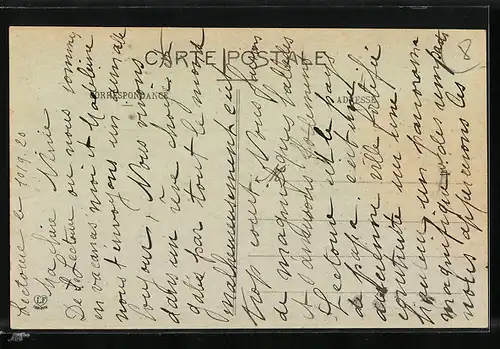 CARTE POSTALE
CORRESPONDANCE
ADRESSE
Lectoure le 10/9.20
Ma chère Ninie
De Lectoure ou nous sommes
en vacances moi et Madeleine
nous t'envoyons un aimable
bonjour, Nous vivons
dans un rêve chose
gatée par tout le monde
malheureusement c'est
trop court. Nous faisons
de magnifiques balades
et
Lectoure est le pays
de papa. c'est une
ancienne ville fortifiée
construite sur une
hauteur un panorama
magnifique des remparts
nous apercevons les
8